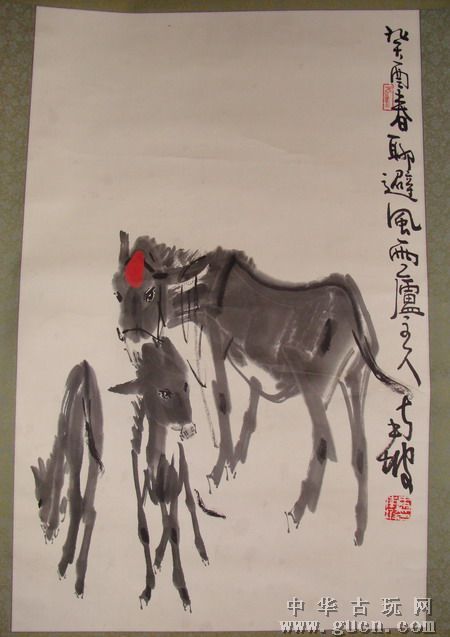 癸酉春聊避風雨廬主人
中华古玩网
www.gucn.com